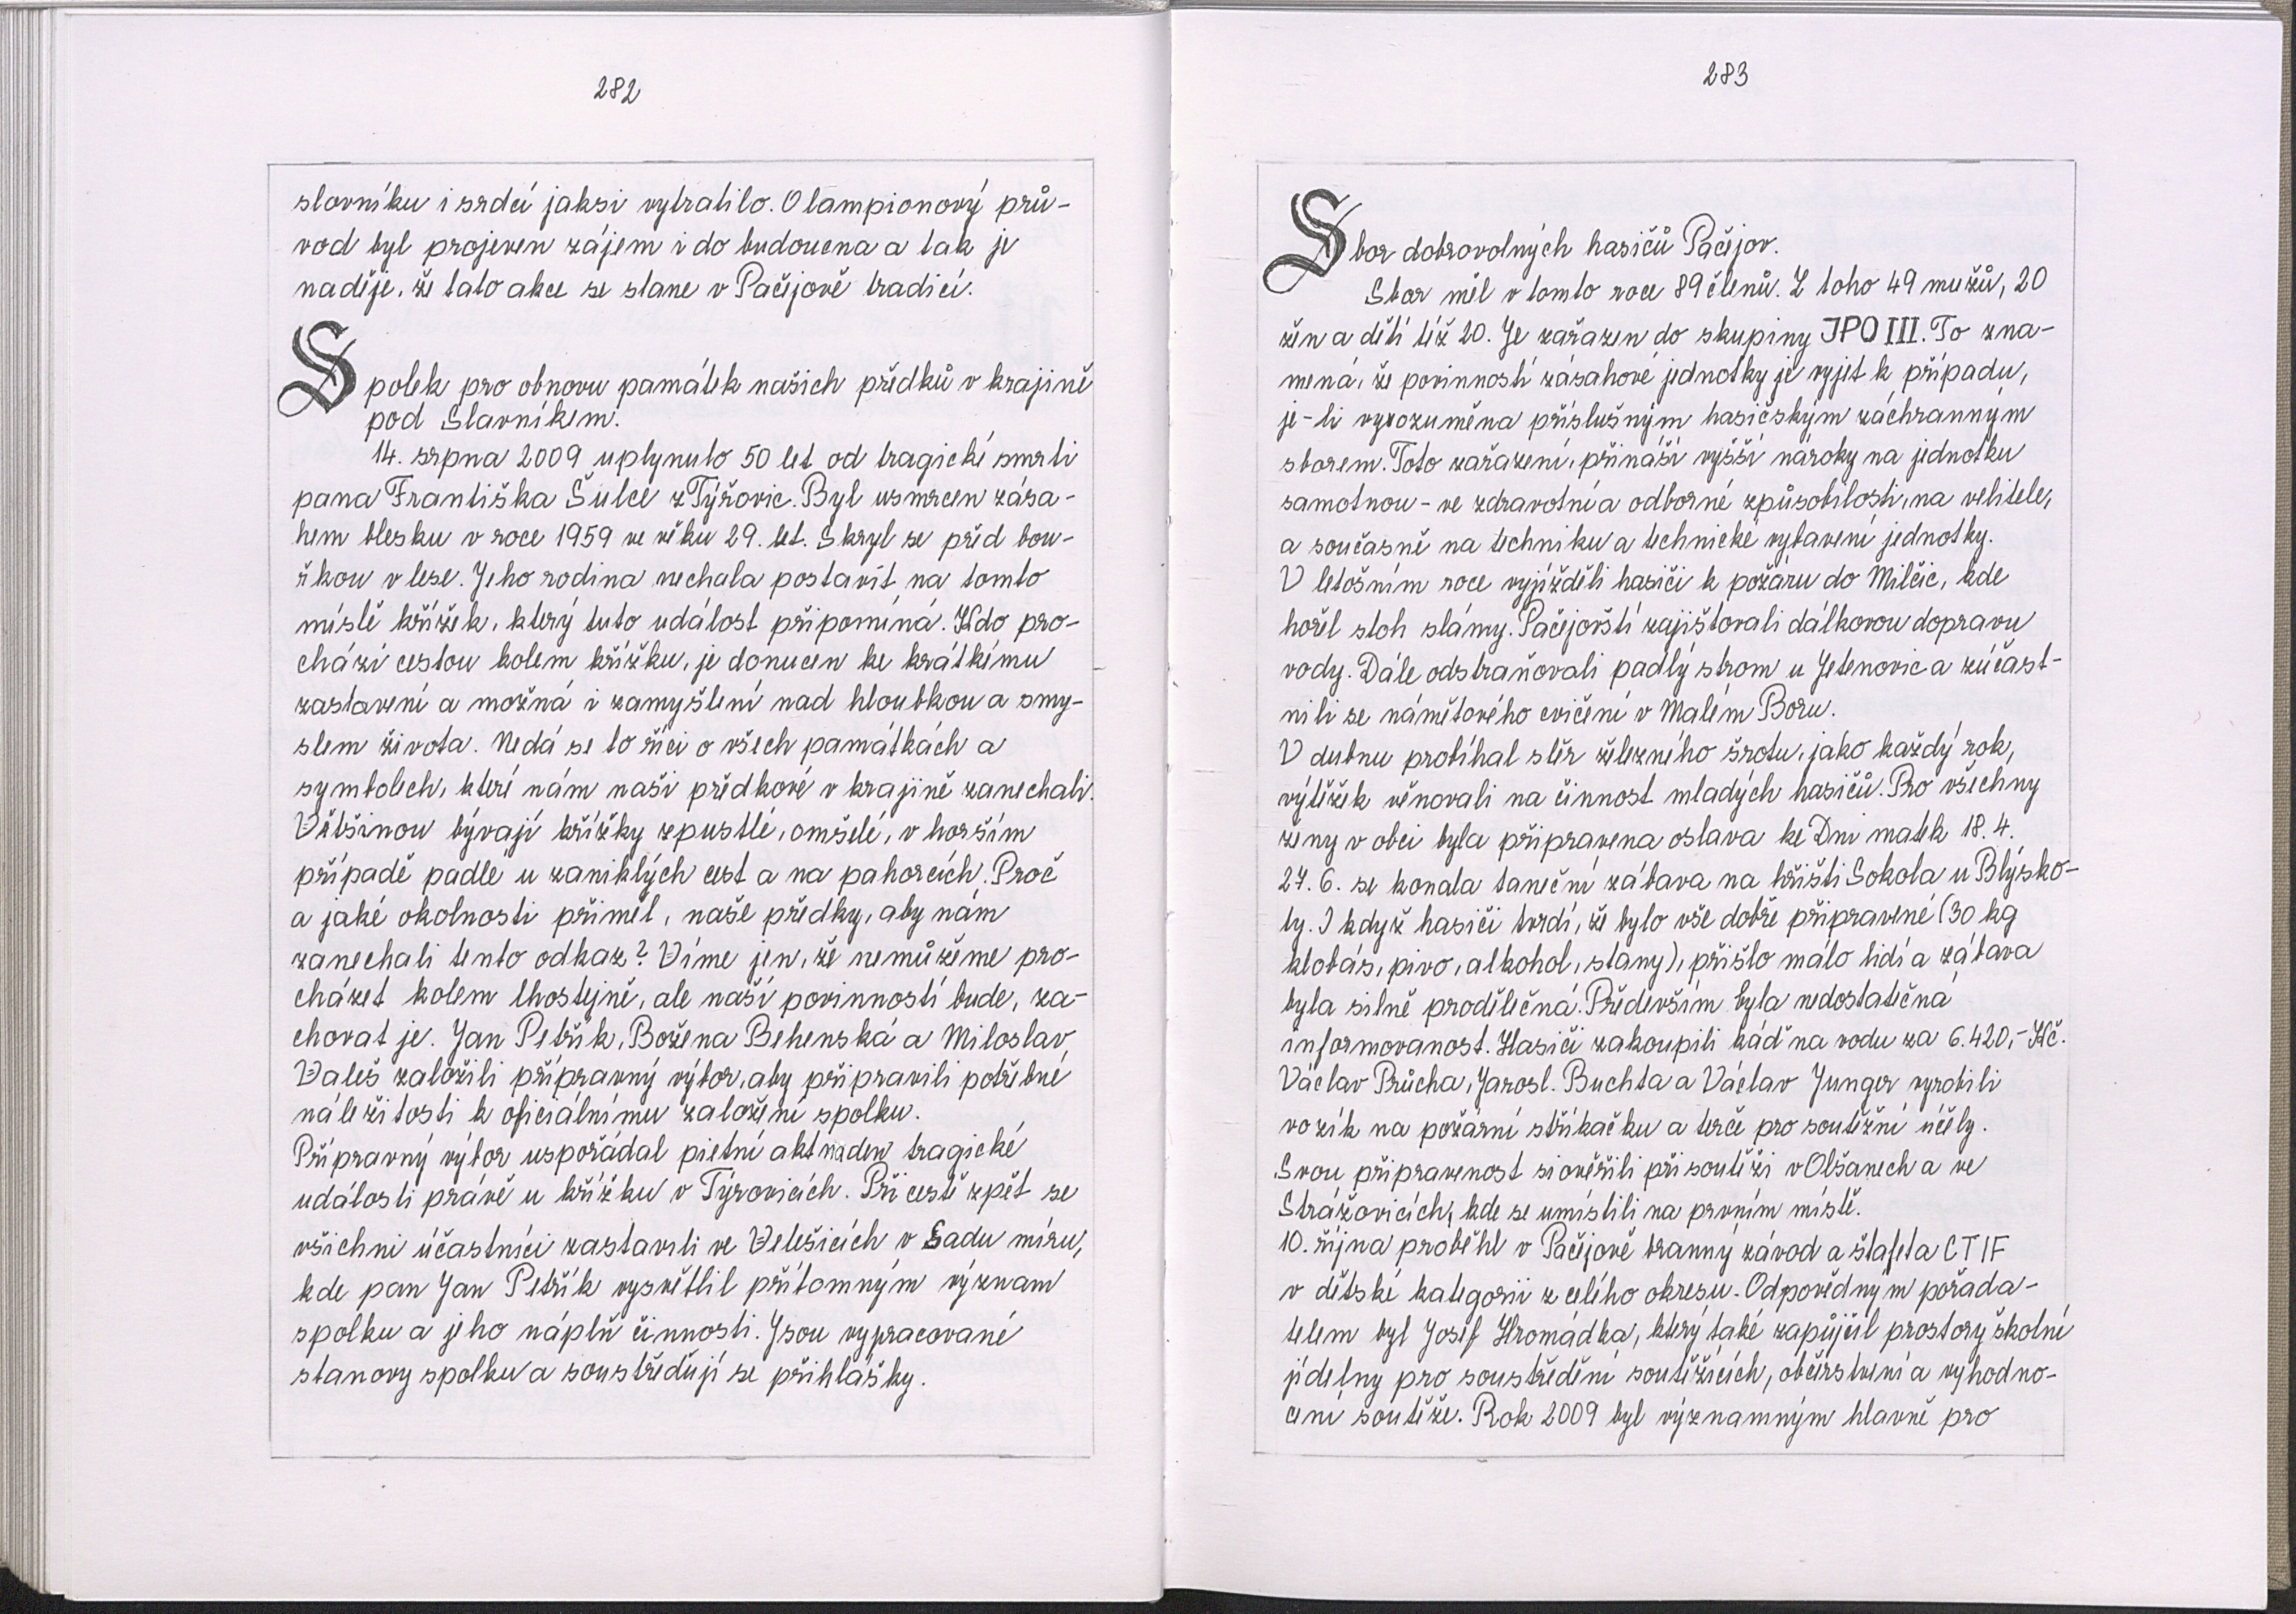 282
slovníku i srdcí jaksi vytratilo. O lampionový prů-
vod byl projeven zájem i do budoucna a tak je
naděje, že tato akce se stane v Pačejově tradicí.
Spolek pro obnovu památek našich předků v krajině
pod Slavníkem.
14. srpna 2009 uplynulo 50 let od tragické smrti
pana Františka Šulce z Týřovic. Byl usmrcen zása-
hem blesku v roce 1959 ve věku 29. let. Skryl se před bou-
řkou v lese. Jeho rodina nechala postavit na tomto
místě křížek, který tuto událost připomíná. Kdo pro-
chází cestou kolem křížku, je donucen ke krátkému
zastavení a možná i zamyšlení nad hloubkou a smy-
slem života. Nedá se to říci o všech památkách a
symbolech, které nám naši předkové v krajině zanechali.
Většinou bývají křížky zpustlé, omšelé, v horším
případě padlé u zaniklých cest a na pahorcích. Proč
a jaké okolnosti přiměl, naše předky, aby nám
zanechali tento odkaz? Víme jen, že nemůžeme pro-
cházet kolem lhostejně, ale naší povinností bude, za-
chovat je. Jan Petřík, Božena Behenská a Miloslav
Valeš založili přípravný výbor, aby připravili potřebné
náležitosti k oficiálnímu založení spolku.
Přípravný výbor uspořádal pietní akt na den tragické
události právě u křížku v Týrovicích. Při cestě zpět se
všichni účastníci zastavili ve Velešicích v Sadu míru,
kde pan Jan Petřík vysvětlil přítomným význam
spolku a jeho náplň činnosti. Jsou vypracované
stanovy spolku a soustřeďují se přihlášky.
283
Sbor dobrovolných hasičů Pačejov.
Sbor měl v tomto roce 89 členů. Z toho 49 mužův, 20
žen a dětí též 20. Je zařazen do skupiny JPO III. To zna-
mená, že povinností zásahové jednotky je vyjet k případu,
je-li vyrozuměna příslušným hasičským záchranným
sborem. Toto zařazení, přináší vyšší nároky na jednotku
samotnou - ve zdravotní a odborné způsobilosti, na velitele,
a současně na techniku a technické vybavení jednotky.
V letošním roce vyjížděli hasiči k požáru do Milčic, kde
hořel stoh slámy. Pačejovští zajišťovali dálkovou dopravu
vody. Dále odstraňovali padlý strom u Jetenovic a zúčast-
nili se námětového cvičení v Malém Boru.
V dubnu probíhal sběr železného šrotu, jako každý rok,
výtěžek věnovali na činnost mladých hasičů. Pro všechny
ženy v obci byla připravena oslava ke Dni matek 18. 4.
27. 6. se konala taneční zábava na hřišti Sokola u Blýsko-
ty. I když hasiči tvrdí, že bylo vše dobře připravené (30 kg
klobás, pivo, alkohol, stany), přišlo málo lidí a zábava
byla silně prodělečná. Především byla nedostatečná
informovanost. Hasiči zakoupili káď na vodu za 6.420,- Kč.
Václav Průcha, Jarosl. Buchta a Václav Junger vyrobili
vozík na požární stříkačku a terče pro soutěžní účely.
Svou připravenost si ověřili při soutěži v Olšanech a ve
Strážovicích, kde se umístili na prvním místě.
10. října proběhl v Pačejově branný závod a štafeta CTIF
v dětské kategorii z celého okresu. Odpovědným pořada-
telem byl Josef Hromádka, který také zapůjčil prostory školní
jídelny pro soustředění soutěžících, občerstvení a vyhodno-
cení soutěže. Rok 2009 byl významným hlavně pro